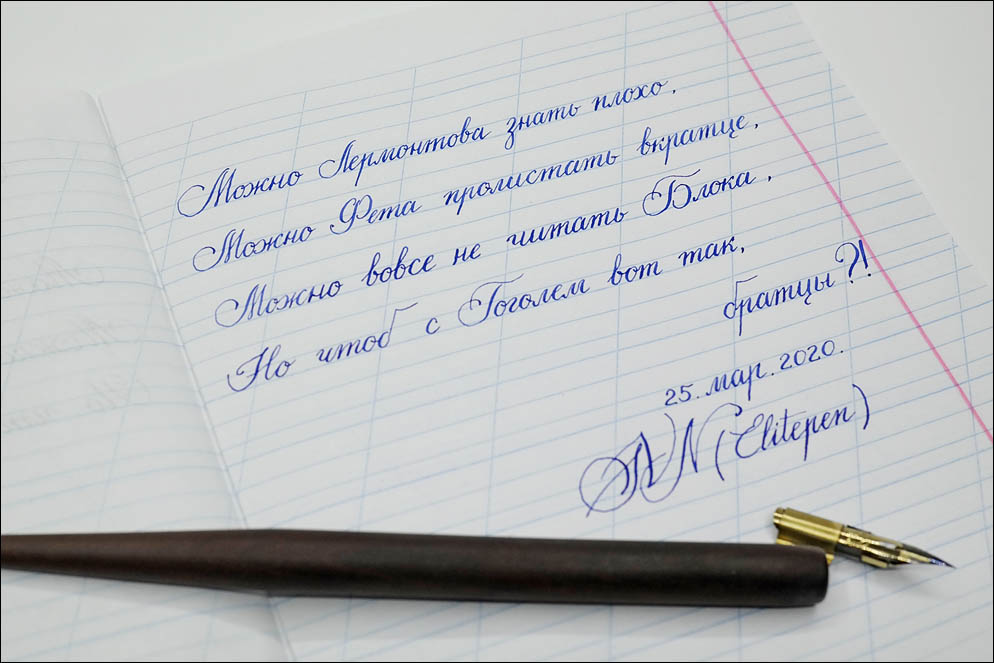 Можно Лермонтова знать плохо,
Можно Фета пролистать вкратце,
Можно вовсе не читать Блока,
Но чтоб с Гоголем вот так,
братцы?!
25. мар. 2020.
AN (Elitepen)